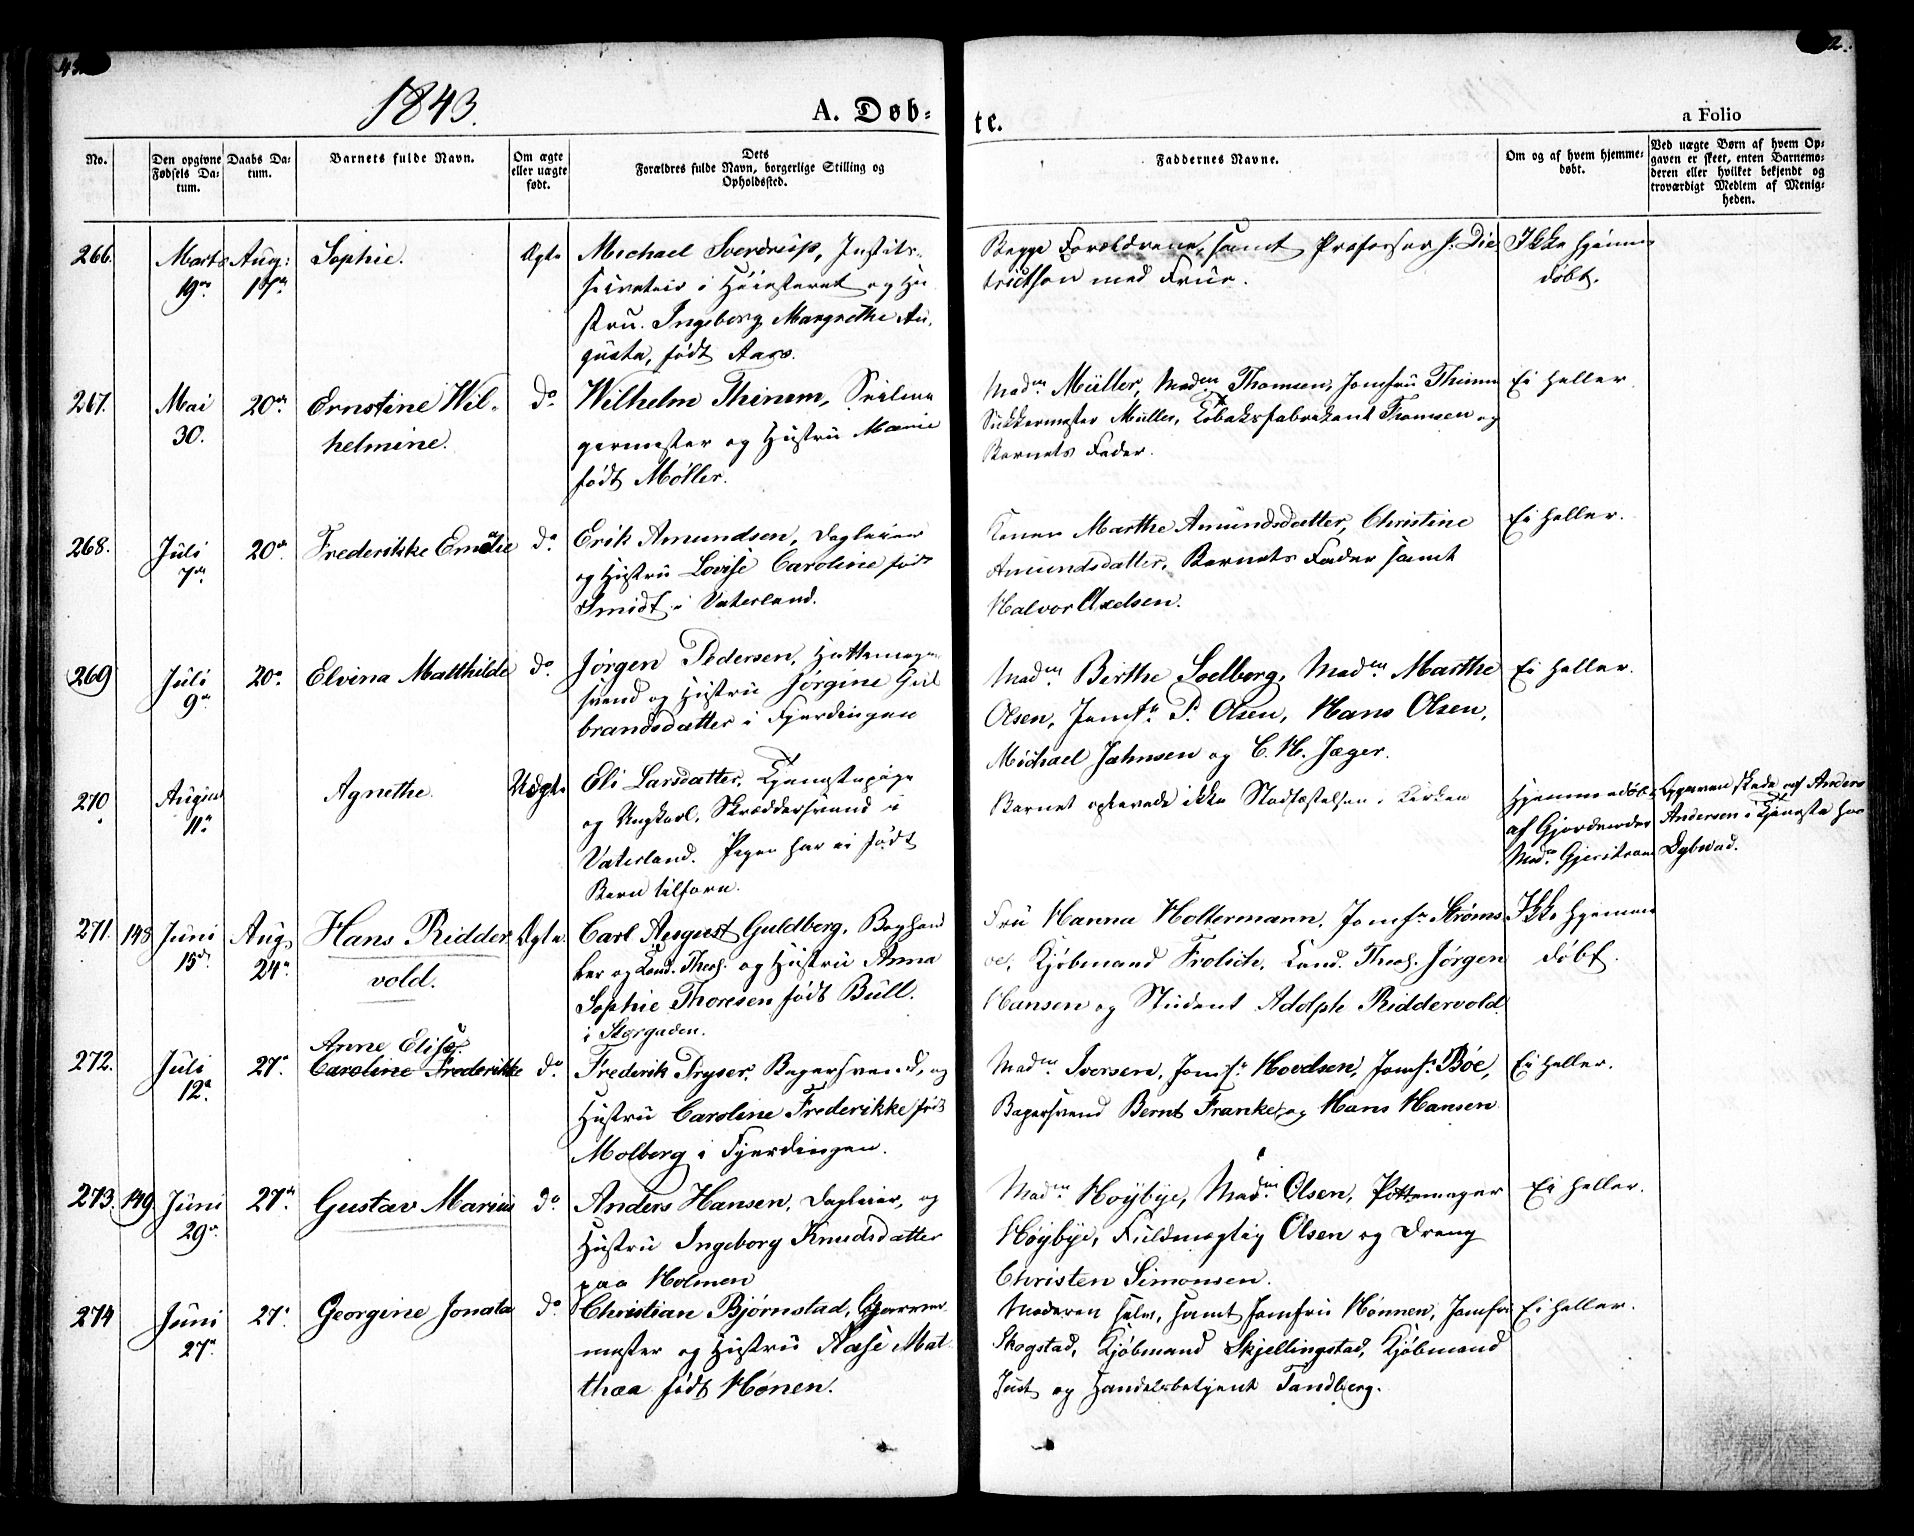 1843.
A. Døb-
te.
a Folio
No.
Den opgivne
Fødsels Da-
tum.
Daabs Da-
tum.
Barnets fulde Navn.
Om ægte
eller uægte
født.
Dets
Forældres fulde Navn, borgerlige Stilling og
Opholdssted.
Faddernes Navne.
Om og af hvem hjemme-
døbt.
Ved uægte Børn af hvem Op-
gaven er skeet, enten Barnemo-
deren eller hvilket bekjendt og
troværdigt Medlem af Menig-
heden.
266.
Marts
19de
Aug:
17de
Sophie.
Ægte
Michael Sverdrup,
i Høiesteret og Hu
stru. Ingeborg Margrethe Au,
gusta, født Aars.
Begge Forældrene, samt Professor Die
trichson med Frue.
Ikke hjemme
døbt.
267.
Mai
30.
20de
Ernstine Wil-
helmine.
do
Wilhelm Thimm,
germester og Hustru Marie
født Møller.
Madm Müller, Madm Thomsen, Jomfru Thimm
Sukkermester Müller, Tobaksfabrikant Thomsen og
Barnets Fader.
Ei heller.
268.
Juli
7de
20de
Frederikke Emelie
do
Erik Amundsen, Dagleier
og Hustru Lovise Caroline født
Smidt i Vaterland.
Konen Marthe Amundsdatter, Christine
Amundsdatter, Barnets Fader samt
Halvor Axelsen.
Ei heller.
269
Juli
9de
20de
Elvina Matthilde
do
Jørgen Pedersen, Hattemager
svend og Hustru Jørgine Gul
brandsdatter i Fjerdingen
Madm Birthe Soelberg, Madm Marthe
Olsen, Jomfr P. Olsen, Hans Olsen,
Michael Jahnsen og C. H. Jæger.
Ei heller.
270
August
11te
Agnethe.
Uægte
Eli Larsdatter, Tjenestepige
og Ungkarl, Skræddersvend i
Vaterland. Pigen har ei født
Barn tilforn.
Barnet oplevede ikke Stadfæstelsen i Kirken
Hjemmedøbt
af Gjordemoder
Madm Gjerstrøm
Opgaven skede af Anders
Andersen i Tjeneste hos
Dybwad.
271.
148
Juni
15de
Aug.
24de
Hans Ridder
vold.
Ægte.
Carl August Guldberg, Boghand
ler og Cand. Theol. og Hustru Anna
Sophie Thoresen født Bull.
i Storgaden.
Fru Hanna Holtermann, Jomfr Strøms
oe, Kjøbmand Frolich, Cand. Theol. Jørgen
Hansen og Student Adolph Riddervold.
Ikke hjemme
døbt.
272.
Juli
12te
27de
Anne Elise
Caroline Frederikke
do
Frederik Pryser, Bagersvend, og
Hustru Caroline Frederikke født
Molberg i Fjerdingen.
Madm Iversen, Jomfr Hovdsen, Jomfr Bøe,
Bagersvend Bernt Franke, og Hans Hansen
Ei heller.
273.
149
Juni
29de
27de
Gustav Marius
do
Anders Hansen, Dagleier, og
Hustru Ingeborg Knudsdatter
paa Holmen
Madm Høybye, Madm Olsen, Pottemager
Høybye, Fuldmægtig Olsen og Dreng
Christen Simonsen.
Ei heller.
274
Juni
27de
27de
Georgine Jonata
do
Christian Bjørnstad, Garver
mester og Hustru Aase Mat
thea født Hønen.
Moderen selv, samt Jomfru Hønnen, Jomfru
Skogstad, Kjøbmand Skjellingstad, Kjøbmand
Just og Handelsbetjent Tandberg.
Ei heller.